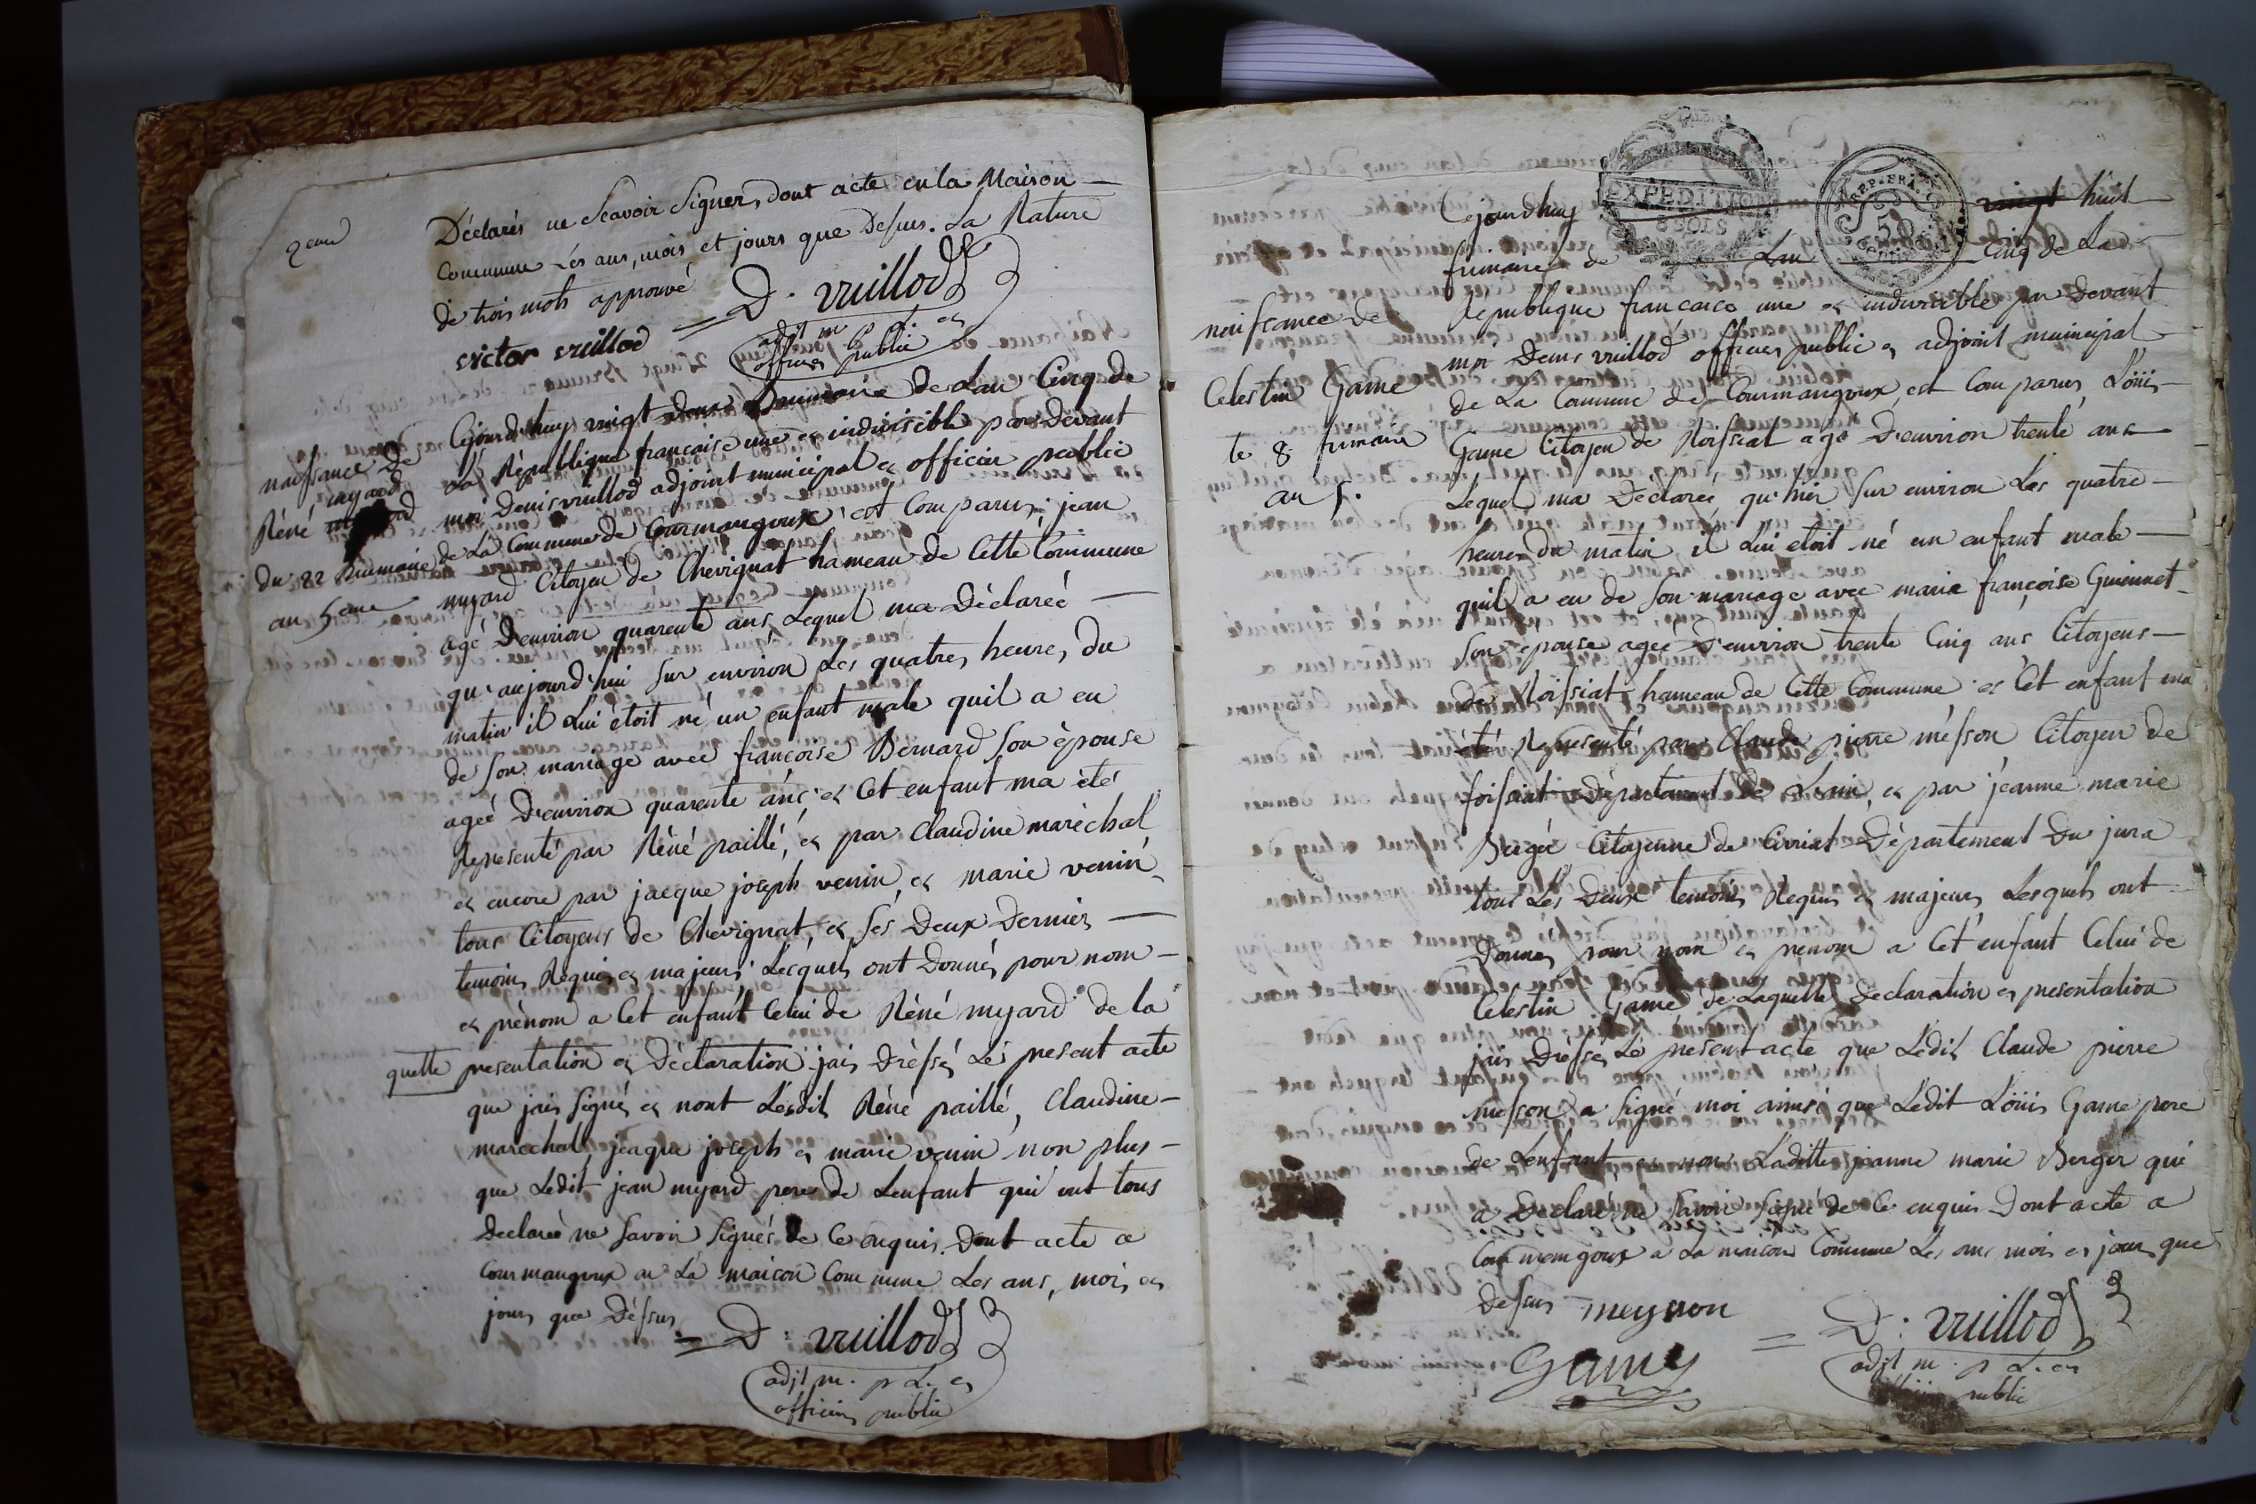 2eme
Déclarés ne Scavoir Signer, dont acte en la Maison
Commune Les ans, mois et jours que Dessus. La Rature
de trois mots approuvé
victor vuillod = D. vuillod
adjt m. p al. et
officier public
naissance de
Réné myard
du 22 Brumaire
an 5eme
Cejourd'huy vingt deux Brumaire de Lan Cinq de
La République francaise une et indivisible par devant
moi Denis vuillod adjoint municipal et officier public
de La Commune de Courmangoux est Comparus jean
myard Citoyen de Chevignat hameau de Cette Commune
agé D'environ quarente ans Lequel ma Déclareé
qu'aujourd'hui Sur environ Les quatres heures du
matin il Lui etoit né un enfant male quil a eu
de Son mariage avec francoise Bernard Son épouse
ageé D'environ quarente ans et Cet enfant ma été
Representé par Réné paillé, et par Claudine maréchal
et encore par jacque joseph venin, et marie venin
tous Citoyens de Chevignat, et Ses Deux Dernier
temoins Requis et majeurs Lesquels ont Donnés pour nom
et prénom a Cet enfant Celui de Réné myard de la
quelle presentation et Déclaration jais Dréssés Le present acte
que jais Signés et nont Lesdits Réné paillé, Claudine
marechal jacque joseph et marie venin non plus
que Ledit jean myard pere de Lenfant qui ont tous
Declareé ne Savoir Signés de Ce enquis. Dont acte a
Courmangoux en La maison Commune Les ans, mois et
jours que Dessus = D. vuillod
adjt m. p al. et
officier public
EXPEDITION
8 SOLS
REP. FRA.
Cejourdhuy vingt huit
frimaire de Lan Cinq de La
naissance de
Celestin Game
le 8 frimaire
an 5.
République francaise une et indivisible par Devant
moi Denis vuillod officier public et adjoint municipal
de La Commune de Courmangoux est Comparus Löuis
Game Citoyen de Roissiat agé D'environ trente ans
Lequel ma Déclareé qu'hier Sur environ Les quatre
heures du matin il Lui etoit né un enfant male
quil a eu de Son mariage avec marie françoise Guionnet
Son epouse ageé D'environ trente Cinq ans Citoyens
de Roissiat hameau de Cette Commune et Cet enfant ma
été Representé par Claude pierre mésson Citoyen de
foissiat Département de Lain, et par jeanne marie
Bergér Citoyenne de Civriat Département Du jura
tous Les Deux temoins Requis et majeurs Lesquels ont
Donnés pour nom et prenom a Cet enfant Celui de
Celestin Game de Laquelle Declaration et presentation
jais Dréssés Le present acte que Ledit Claude pierre
messon a Signé moi ainsi que Ledit Löuis Game pere
de Lenfant, et non Laditte jeanne marie Berger qui
a Declaré ne Savoir Signé de Ce enquis Dont acte a
Courmangoux a La maison Commune Les ans mois et jours que
dessus meysson = D. vuillod
Game adjt m. p al. et
public